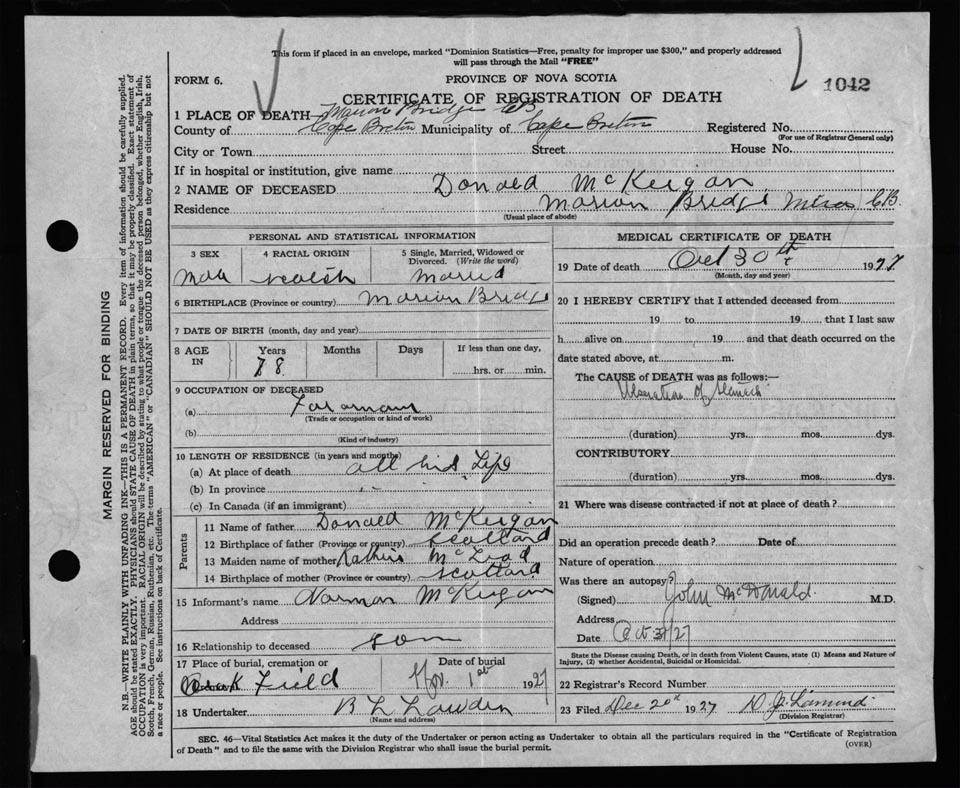 This form if placed in an envelope, marked "Dominion Statistics—Free, penalty for improper use $300," and properly addressed
will pass through the Mail "FREE"
FORM 6.
PROVINCE OF NOVA SCOTIA
1042
CERTIFICATE OF REGISTRATION OF DEATH
1 PLACE OF DEATH Marion Bridge CB
County of Cape Breton Municipality of Cape Breton Registered No.
(For use of Registrar General only)
City or Town Street House No.
If in hospital or institution, give name
2 NAME OF DECEASED Donald McKeigan
Residence Marion Bridge Mira CB.
(Usual place of abode)
PERSONAL AND STATISTICAL INFORMATION
3 SEX
4 RACIAL ORIGIN
5 Single, Married, Widowed or
Divorced. (Write the word)
Male Married
6 BIRTHPLACE (Province or country) Marion Bridge
7 DATE OF BIRTH (month, day and year)
8 AGE
IN
Years
Months
Days
If less than one day,
hrs. or min.
78
9 OCCUPATION OF DECEASED
(a)
(Trade or occupation or kind of work)
(b)
(Kind of industry)
10 LENGTH OF RESIDENCE (in years and months)
(a) At place of death all his Life
(b) In province
(c) In Canada (if an immigrant)
Parents
11 Name of father Donald McKeigan
12 Birthplace of father (Province or country) Scotland
13 Maiden name of mother McLeod
14 Birthplace of mother (Province or country) Scotland
15 Informant's name Norman McKeigan
Address
16 Relationship to deceased son
17 Place of burial, cremation or
Date of burial
Field Nov. 1st 1927
18 Undertaker B L
(Name and address)
MEDICAL CERTIFICATE OF DEATH
19 Date of death Oct 30th 1927
(Month, day and year)
20 I HEREBY CERTIFY that I attended deceased from
19 to 19 that I last saw
h alive on 19 and that death occurred on the
date stated above, at m.
The CAUSE of DEATH was as follows:—
Ulceration of Stomach
(duration) yrs. mos. dys.
CONTRIBUTORY
(duration) yrs. mos. dys.
21 Where was disease contracted if not at place of death?
Did an operation precede death? Date of
Nature of operation
Was there an autopsy?
(Signed) John McDonald. M.D.
Address
Date Oct 31/27
State the Disease causing Death, or in death from Violent Causes, state (1) Means and Nature of
Injury, (2) whether Accidental, Suicidal or Homicidal.
22 Registrar's Record Number
23 Filed Dec 20th 1927
(Division Registrar)
SEC. 46—Vital Statistics Act makes it the duty of the Undertaker or person acting as Undertaker to obtain all the particulars required in the "Certificate of Registration
of Death" and to file the same with the Division Registrar who shall issue the burial permit.
(OVER)
MARGIN RESERVED FOR BINDING
N.B.—WRITE PLAINLY WITH UNFADING INK—THIS IS A PERMANENT RECORD. Every item of information should be carefully supplied.
AGE should be stated EXACTLY. PHYSICIANS should STATE CAUSE OF DEATH in plain terms, so that it may be properly classified. Exact statement of
OCCUPATION is very important. RACIAL ORIGIN will be described by stating to what people or tongue the deceased person belonged, whether English, Irish,
Scotch, French, German, Russian, Ruthenian, etc. The terms "AMERICAN" or "CANADIAN" SHOULD NOT BE USED as they express citizenship but not
a race or people. See instructions on back of Certificate.